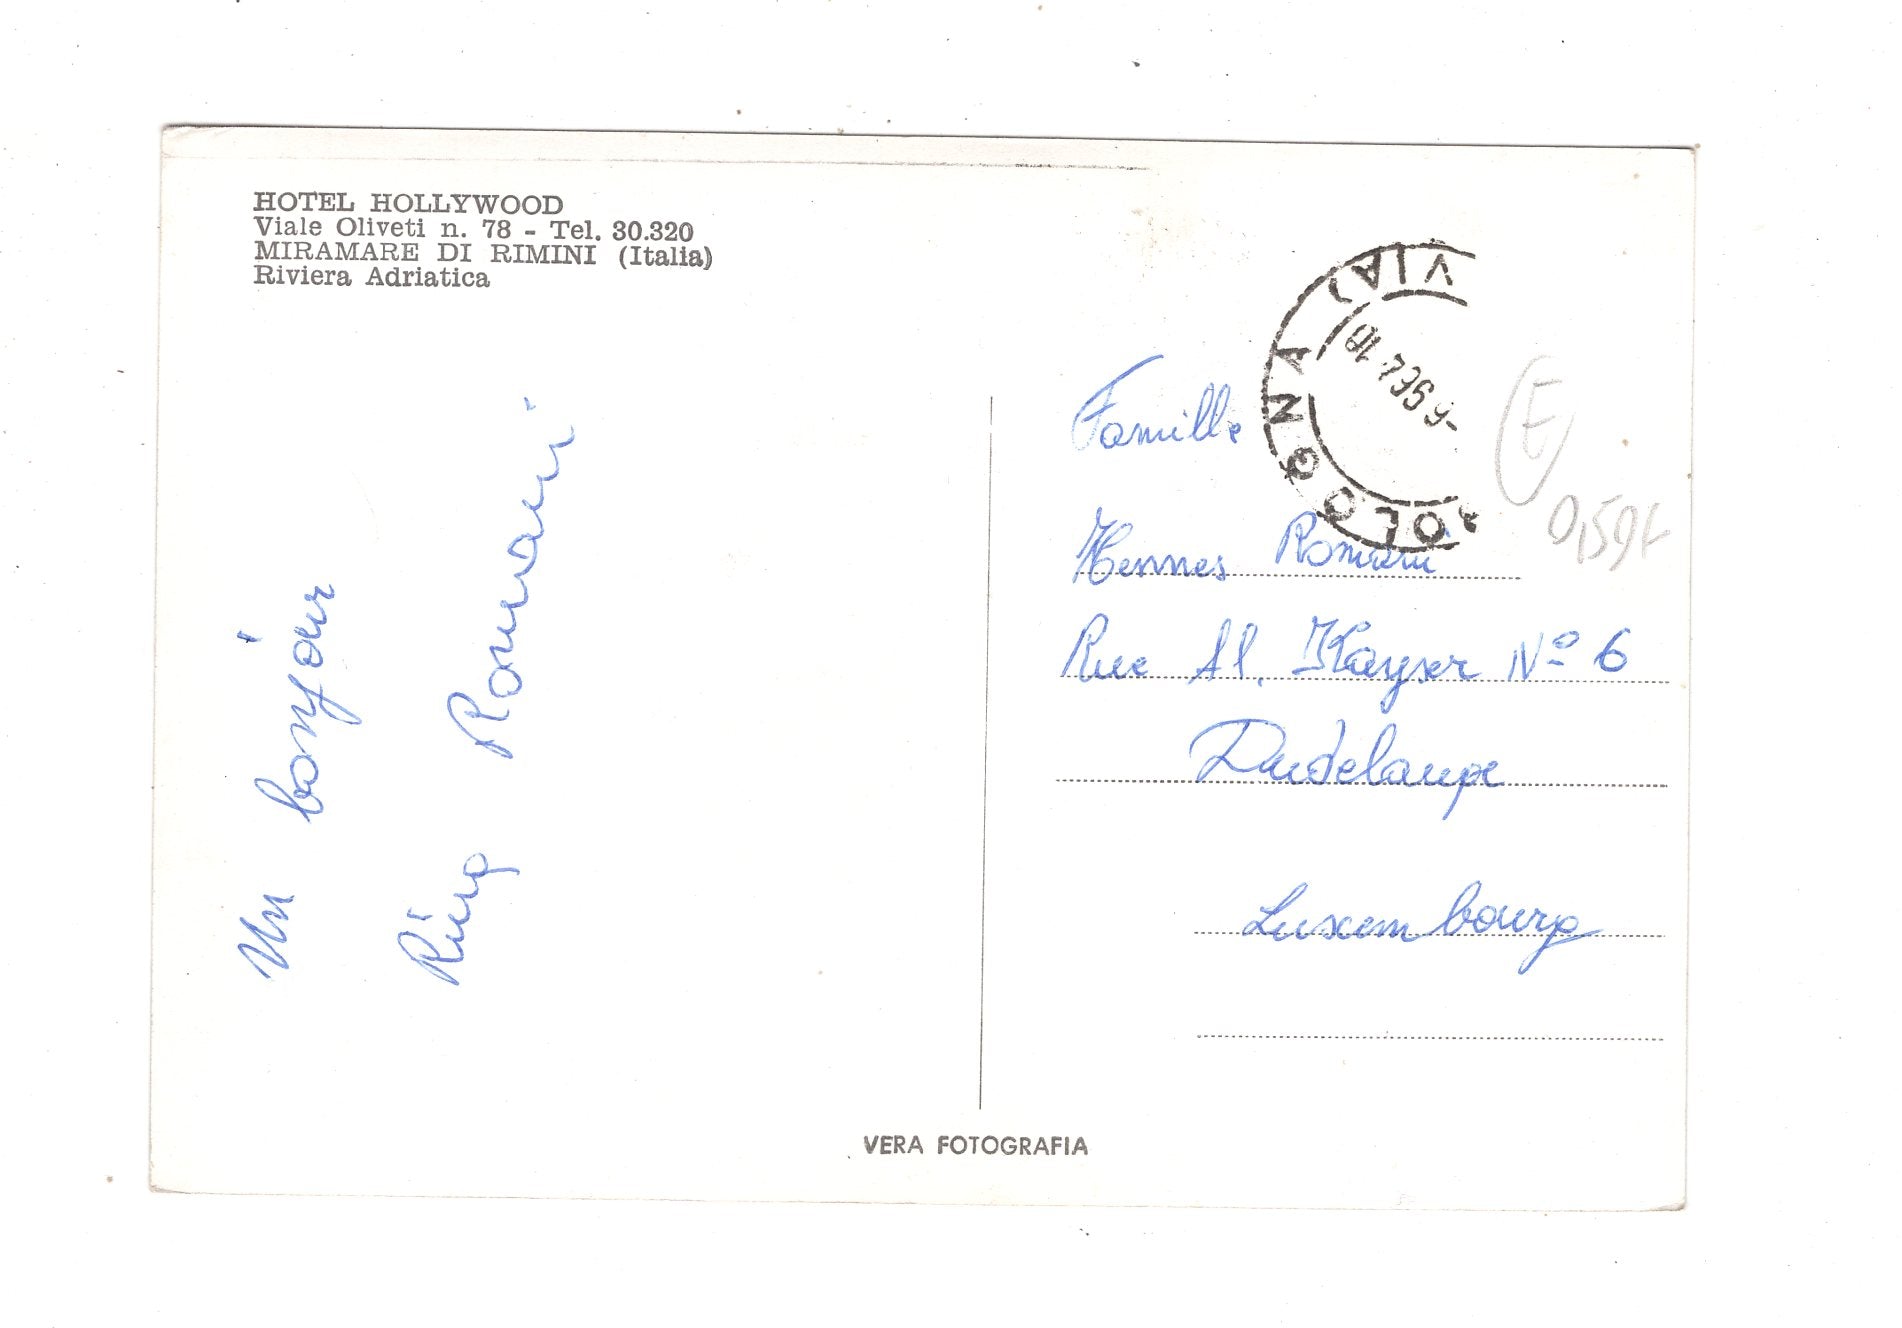 HOTEL HOLLYWOOD
Viale Oliveti n. 78 - Tel. 30.320
MIRAMARE DI RIMINI (Italia)
Riviera Adriatica
Un bonjour
Romani
Famille
Hennes Romani
Rue Al. Kayser Nº 6
Dudelange
Luxembourg
OLOGNA VIA
VERA FOTOGRAFIA
E